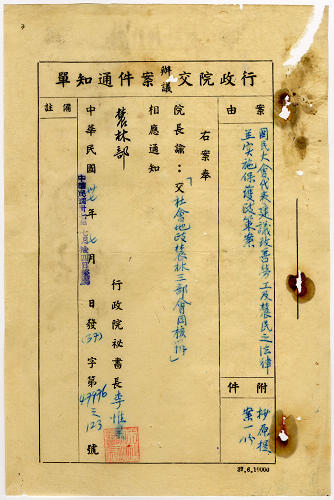 行政院交辦議案件通知單
案由
國民大會代表建議改善勞工及農民之法律
並實施保護政策案
附件
抄原提
案一份
右案奉
院長諭：「交社會地政農林三部會同核辦」
相應通知
農林部
行政院秘書長李惟果
中華民國卅七年七月 日發(37)字第47996之123號
備註
37.6.19000